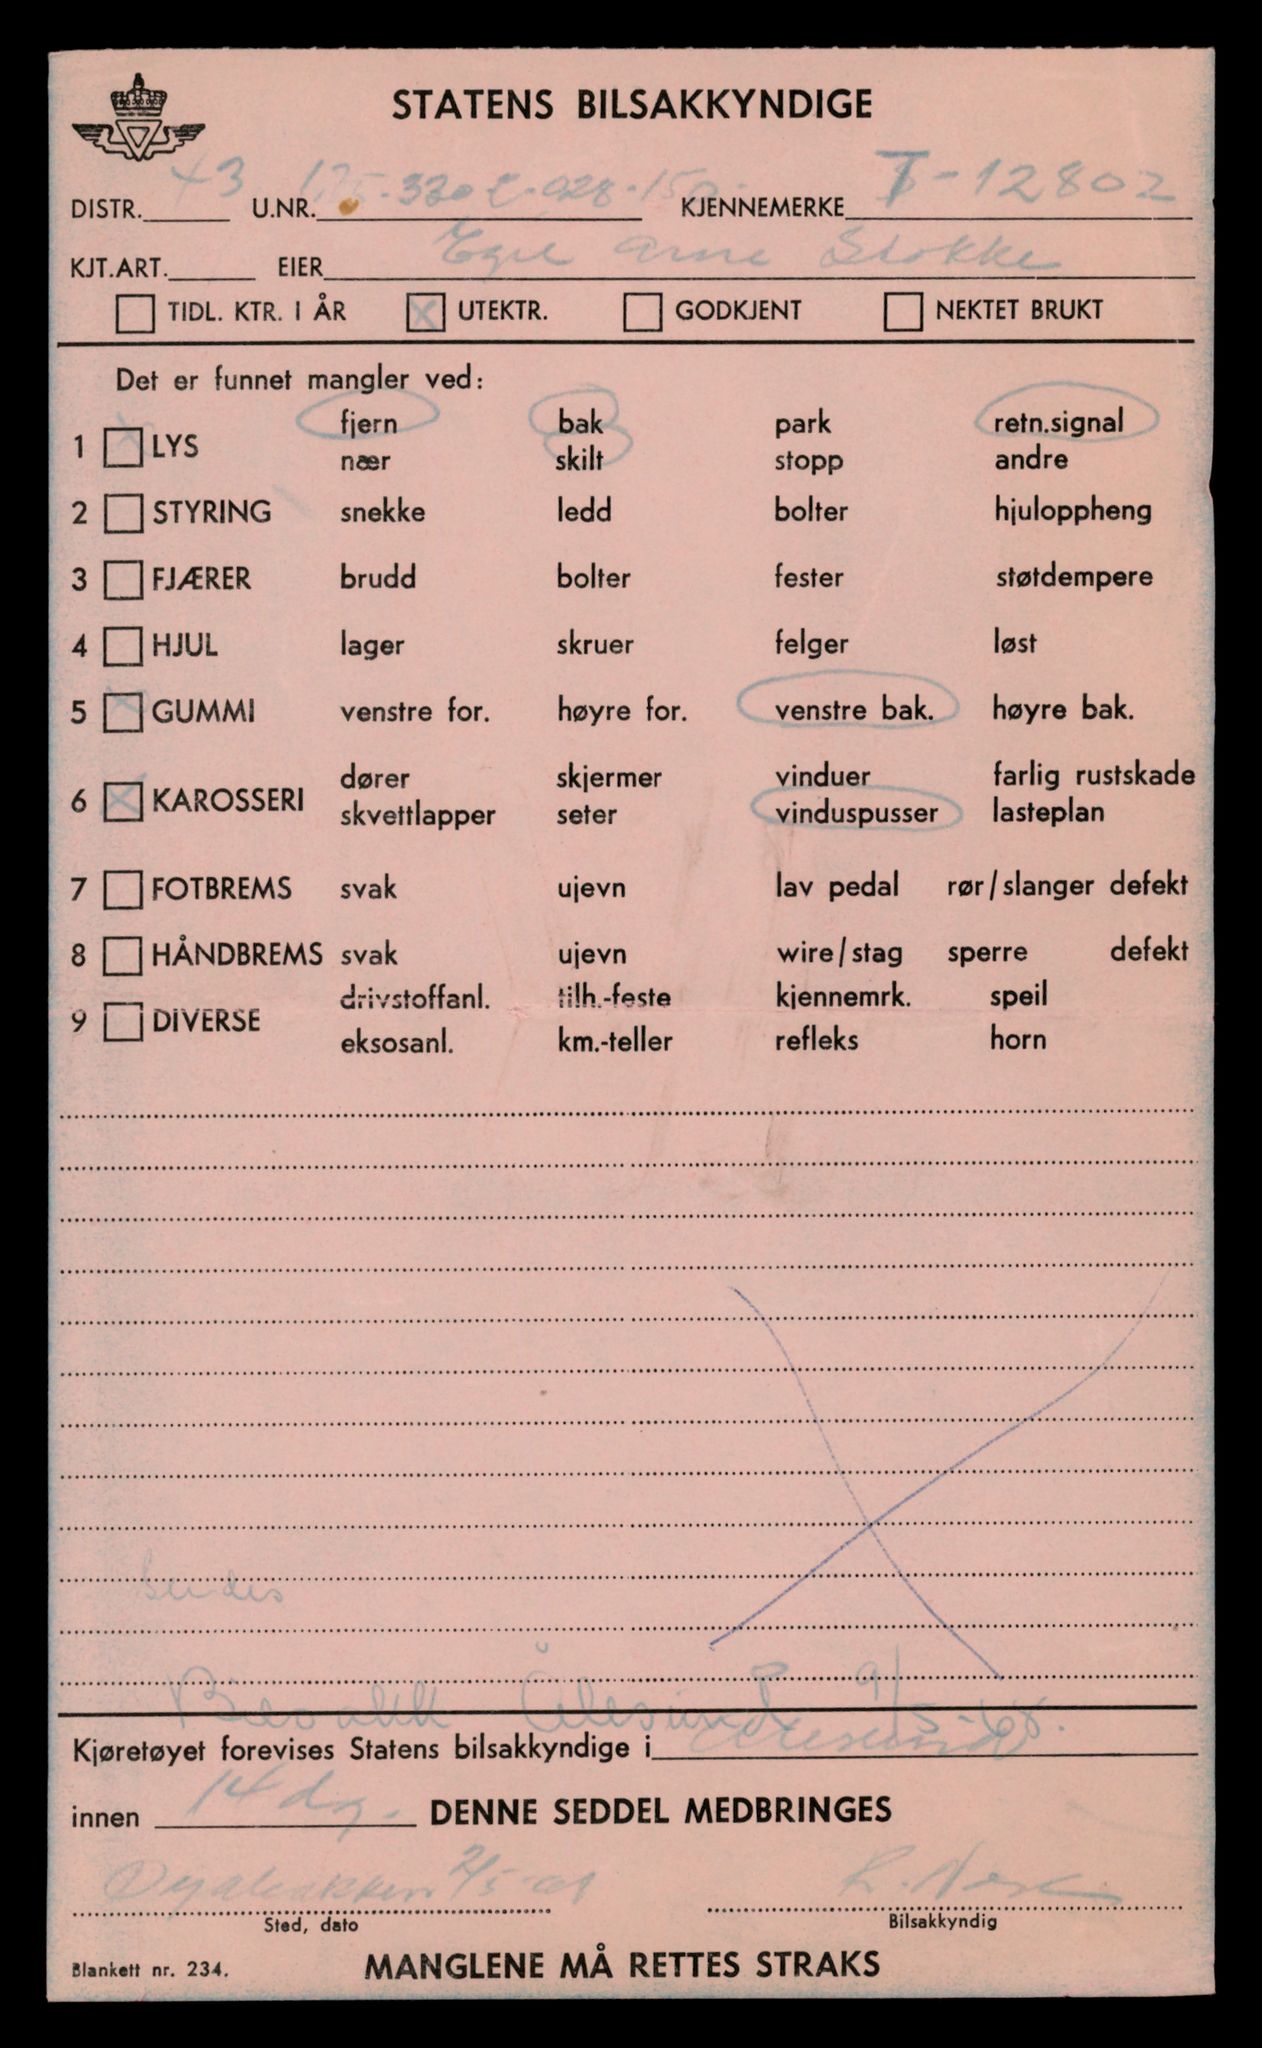 STATENS BILSAKKYNDIGE
DISTR. 43 U.NR. KJENNEMERKE T-12802
KJT.ART. EIER Egil Arne Stokke
TIDL. KTR. I ÅR X UTEKTR. GODKJENT NEKTET BRUKT
Det er funnet mangler ved:
fjern bak park retn.signal
1 X LYS
nær skilt stopp andre
2 STYRING snekke ledd bolter hjuloppheng
3 FJÆRER brudd bolter fester støtdempere
4 HJUL lager skruer felger løst
5 X GUMMI venstre for. høyre for. venstre bak. høyre bak.
dører skjermer vinduer farlig rustskade
6 X KAROSSERI
skvettlapper seter vinduspusser lasteplan
7 FOTBREMS svak ujevn lav pedal rør/slanger defekt
8 HÅNDBREMS svak ujevn wire/stag sperre defekt
drivstoffanl. tilh.-feste kjennemrk. speil
9 DIVERSE
eksosanl. km.-teller refleks horn
Sendes
Ålesund 9/5-68.
Kjøretøyet forevises Statens bilsakkyndige i Ålesund
innen 14 dg. DENNE SEDDEL MEDBRINGES
2/5-68
Sted, dato Bilsakkyndig
Blankett nr. 234. MANGLENE MÅ RETTES STRAKS